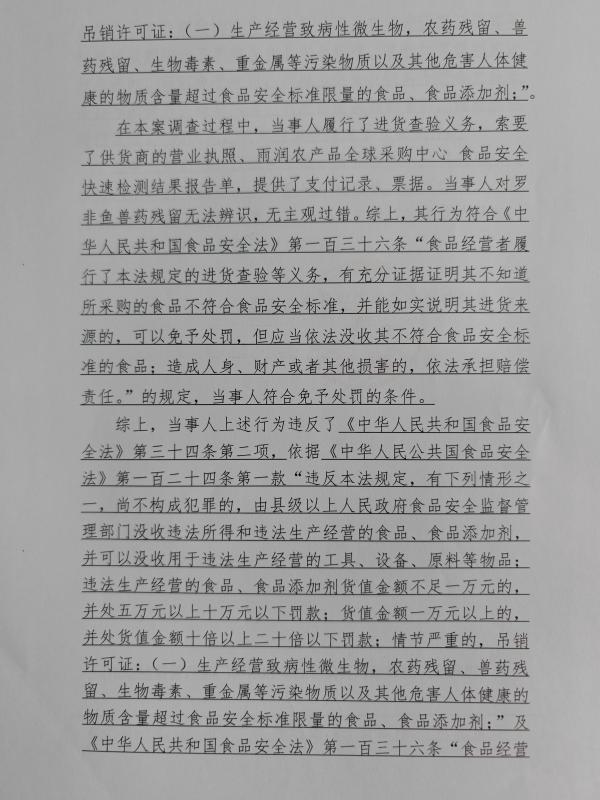 吊销许可证：（一）生产经营致病性微生物，农药残留、兽
药残留、生物毒素、重金属等污染物质以及其他危害人体健
康的物质含量超过食品安全标准限量的食品、食品添加剂；”。
在本案调查过程中，当事人履行了进货查验义务，索要
了供货商的营业执照、雨润农产品全球采购中心 食品安全
快速检测结果报告单，提供了支付记录、票据。当事人对罗
非鱼兽药残留无法辨识，无主观过错。综上，其行为符合《中
华人民共和国食品安全法》第一百三十六条“食品经营者履
行了本法规定的进货查验等义务，有充分证据证明其不知道
所采购的食品不符合食品安全标准，并能如实说明其进货来
源的，可以免予处罚，但应当依法没收其不符合食品安全标
准的食品；造成人身、财产或者其他损害的，依法承担赔偿
责任。”的规定，当事人符合免予处罚的条件。
综上，当事人上述行为违反了《中华人民共和国食品安
全法》第三十四条第二项，依据《中华人民公共国食品安全
法》第一百二十四条第一款“违反本法规定，有下列情形之
一，尚不构成犯罪的，由县级以上人民政府食品安全监督管
理部门没收违法所得和违法生产经营的食品、食品添加剂，
并可以没收用于违法生产经营的工具、设备、原料等物品；
违法生产经营的食品、食品添加剂货值金额不足一万元的，
并处五万元以上十万元以下罚款；货值金额一万元以上的，
并处货值金额十倍以上二十倍以下罚款；情节严重的，吊销
许可证：（一）生产经营致病性微生物，农药残留、兽药残
留、生物毒素、重金属等污染物质以及其他危害人体健康的
物质含量超过食品安全标准限量的食品、食品添加剂；”及
《中华人民共和国食品安全法》第一百三十六条“食品经营